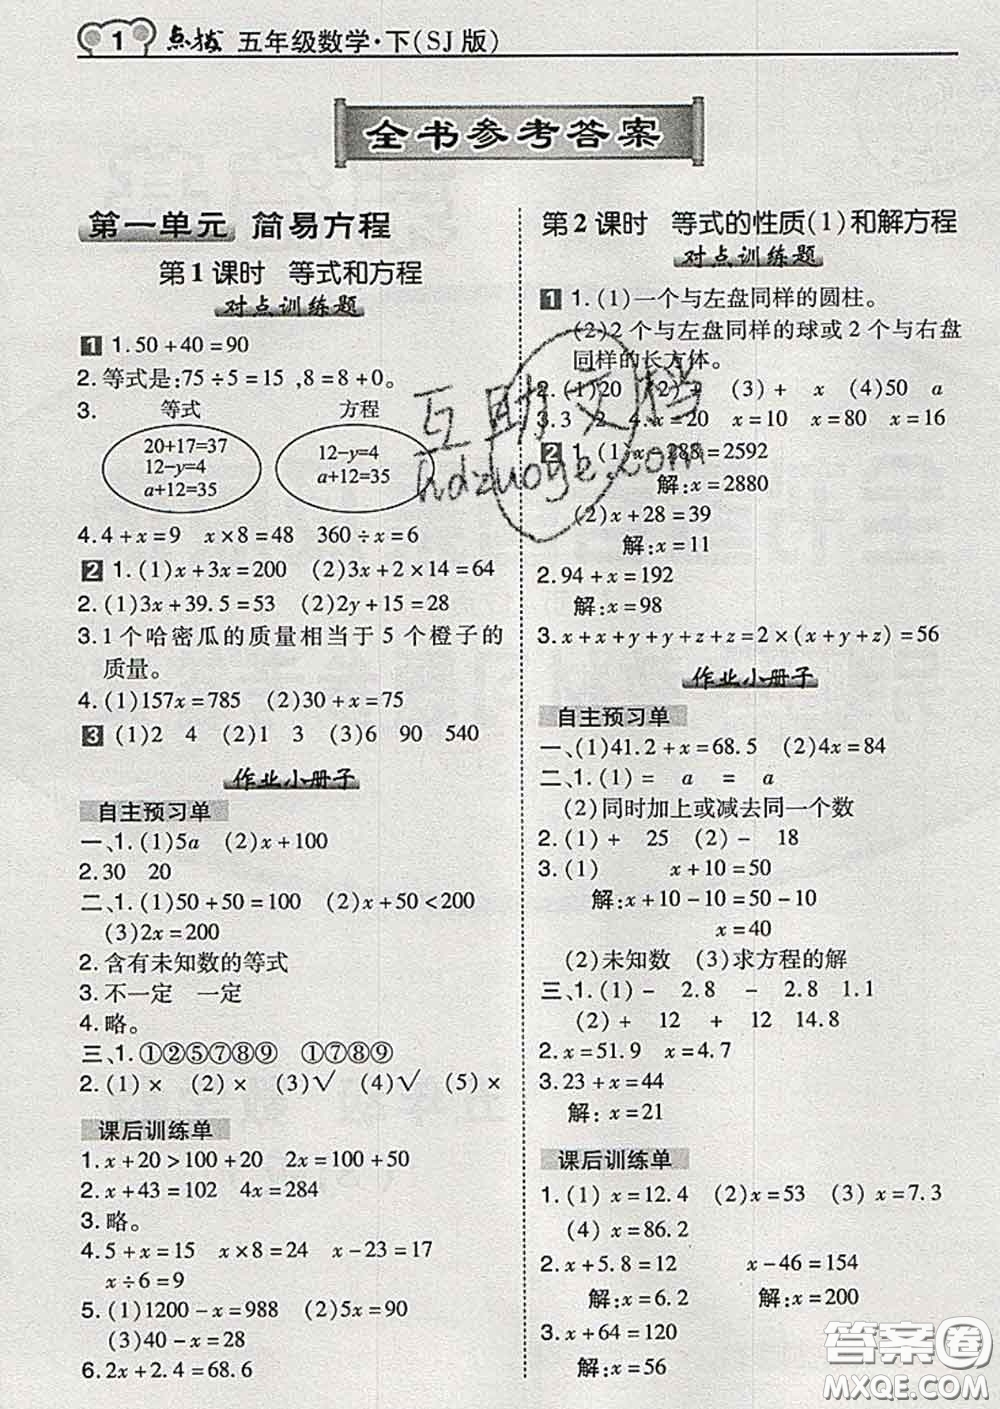 1 点拨 五年级数学·下(SJ版)
全书参考答案
第一单元 简易方程
第1课时 等式和方程
对点训练题
1 1.50+40=90
2.等式是:75÷5=15,8=8+0。
3. 等式 方程
20+17=37
12-y=4
a+12=35
12-y=4
a+12=35
4.4+x=9 x×8=48 360÷x=6
2 1.(1)x+3x=200 (2)3x+2×14=64
2.(1)3x+39.5=53 (2)2y+15=28
3.1个哈密瓜的质量相当于5个橙子的
质量。
4.(1)157x=785 (2)30+x=75
3 (1)2 4 (2)1 3 (3)6 90 540
作业小册子
自主预习单
一、1.(1)5a (2)x+100
2.30 20
二、1.(1)50+50=100 (2)x+50<200
(3)2x=200
2.含有未知数的等式
3.不一定 一定
4.略。
三、1.①②⑤⑦⑧⑨ ①⑦⑧⑨
2.(1)× (2)× (3)√ (4)√ (5)×
课后训练单
1.x+20>100+20 2x=50+50
2.x+43=102 4x=284
3.略。
4.5+x=15 x×8=24 x-23=17
x÷6=9
5.(1)1200-x=988 (2)5x=90
(3)40-x=28
6.2x+2.4=68.6
第2课时 等式的性质(1)和解方程
对点训练题
1 1.(1)一个与左盘同样的圆柱。
(2)2个与左盘同样的球或2个与右盘
同样的长方体。
2.(1)20 (2)+ (3)+ x (4)50 a
3.3 2 4.x=20 x=80 x=16
2 1.(1)x-288=2592
解:x=2880
(2)x+28=39
解:x=11
2.94+x=192
解:x=98
3.x+x+y+y+z+z=2×(x+y+z)=56
作业小册子
自主预习单
一、(1)41.2+x=68.5 (2)4x=84
二、1.(1)= a = a
(2)同时加上或减去同一个数
2.(1)+ 25 (2)- 18
3.(1) x+10=50
解:x+10-10=50-10
x=40
(2)未知数 (3)求方程的解
三、1.(1)- 2.8 - 2.8 1.1
(2)+ 12 + 12 14.8
2.x=51.9 x=4.7
3.23+x=44
解:x=21
课后训练单
1.(1) x=12.4 (2)x=53 (3) x=7.3
(4) x=86.2
2.x+5.8=12 x-46=154
解:x=6.2 解:x=200
3.x+64=120
解:x=56
互助文档
hdzuoye.com
答案圈
MXQE.COM